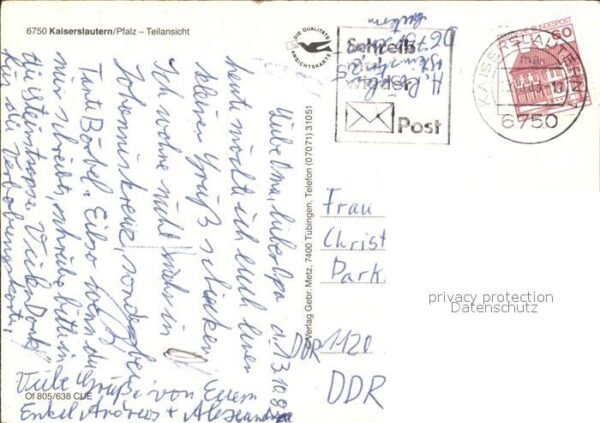 6750 Kaiserslautern/Pfalz – Teilansicht
DIE QUALITÄTS
ANSICHTSKARTE
Schreib
mal
wieder
Post
DEUTSCHE BUNDESPOST
60
KAISERSLAUTERN
6750
Verlag Gebr. Metz, 7400 Tübingen, Telefon (07071) 31051
Liebe Oma, lieber Opa d. 13.10.8
heute möchte ich euch einen
kleinen Gruß schicken.
Ich wohne nicht mehr in
Johanniskreuz, sondern bei
Tante Bärbel. Also wenn du
mir schreibst, schreibe bitte in
die Steinstrasse. Vielen Dank
für die
Viele Grüße von Euern
Enkel Andreas + Alexandra
Frau
Christ
Park.
DDR 1120
DDR
privacy protection
Datenschutz
Of 805/638 CUE